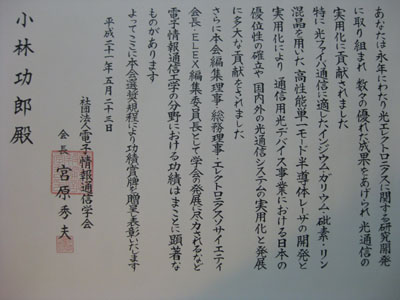 あなたは永年にわたり光エレクトロニクスに関する研究開発
に取り組まれ 数々の優れた成果をあげられ 光通信の
実用化に貢献されました
特に光ファイバ通信に適したインジウム・ガリウム・砒素・リン
混晶を用いた 高性能単一モード半導体レーザの開発と
実用化により 通信用光デバイス事業における日本の
優位性の確立や 国内外の光通信システムの実用化と発展
に多大な貢献をされました
さらに本会編集理事 総務理事・エレクトロニクスソサイエティ
会長・ELEX編集委員長として学会の発展に尽力されるなど
電子情報通信工学の分野における功績はまことに顕著な
ものがあります
よってここに本会選奨規程により功績賞牌を贈呈し表彰いたします
平成二十一年五月二十三日
社団法人電子情報通信学会
会長 宮原秀夫
小林功郎殿